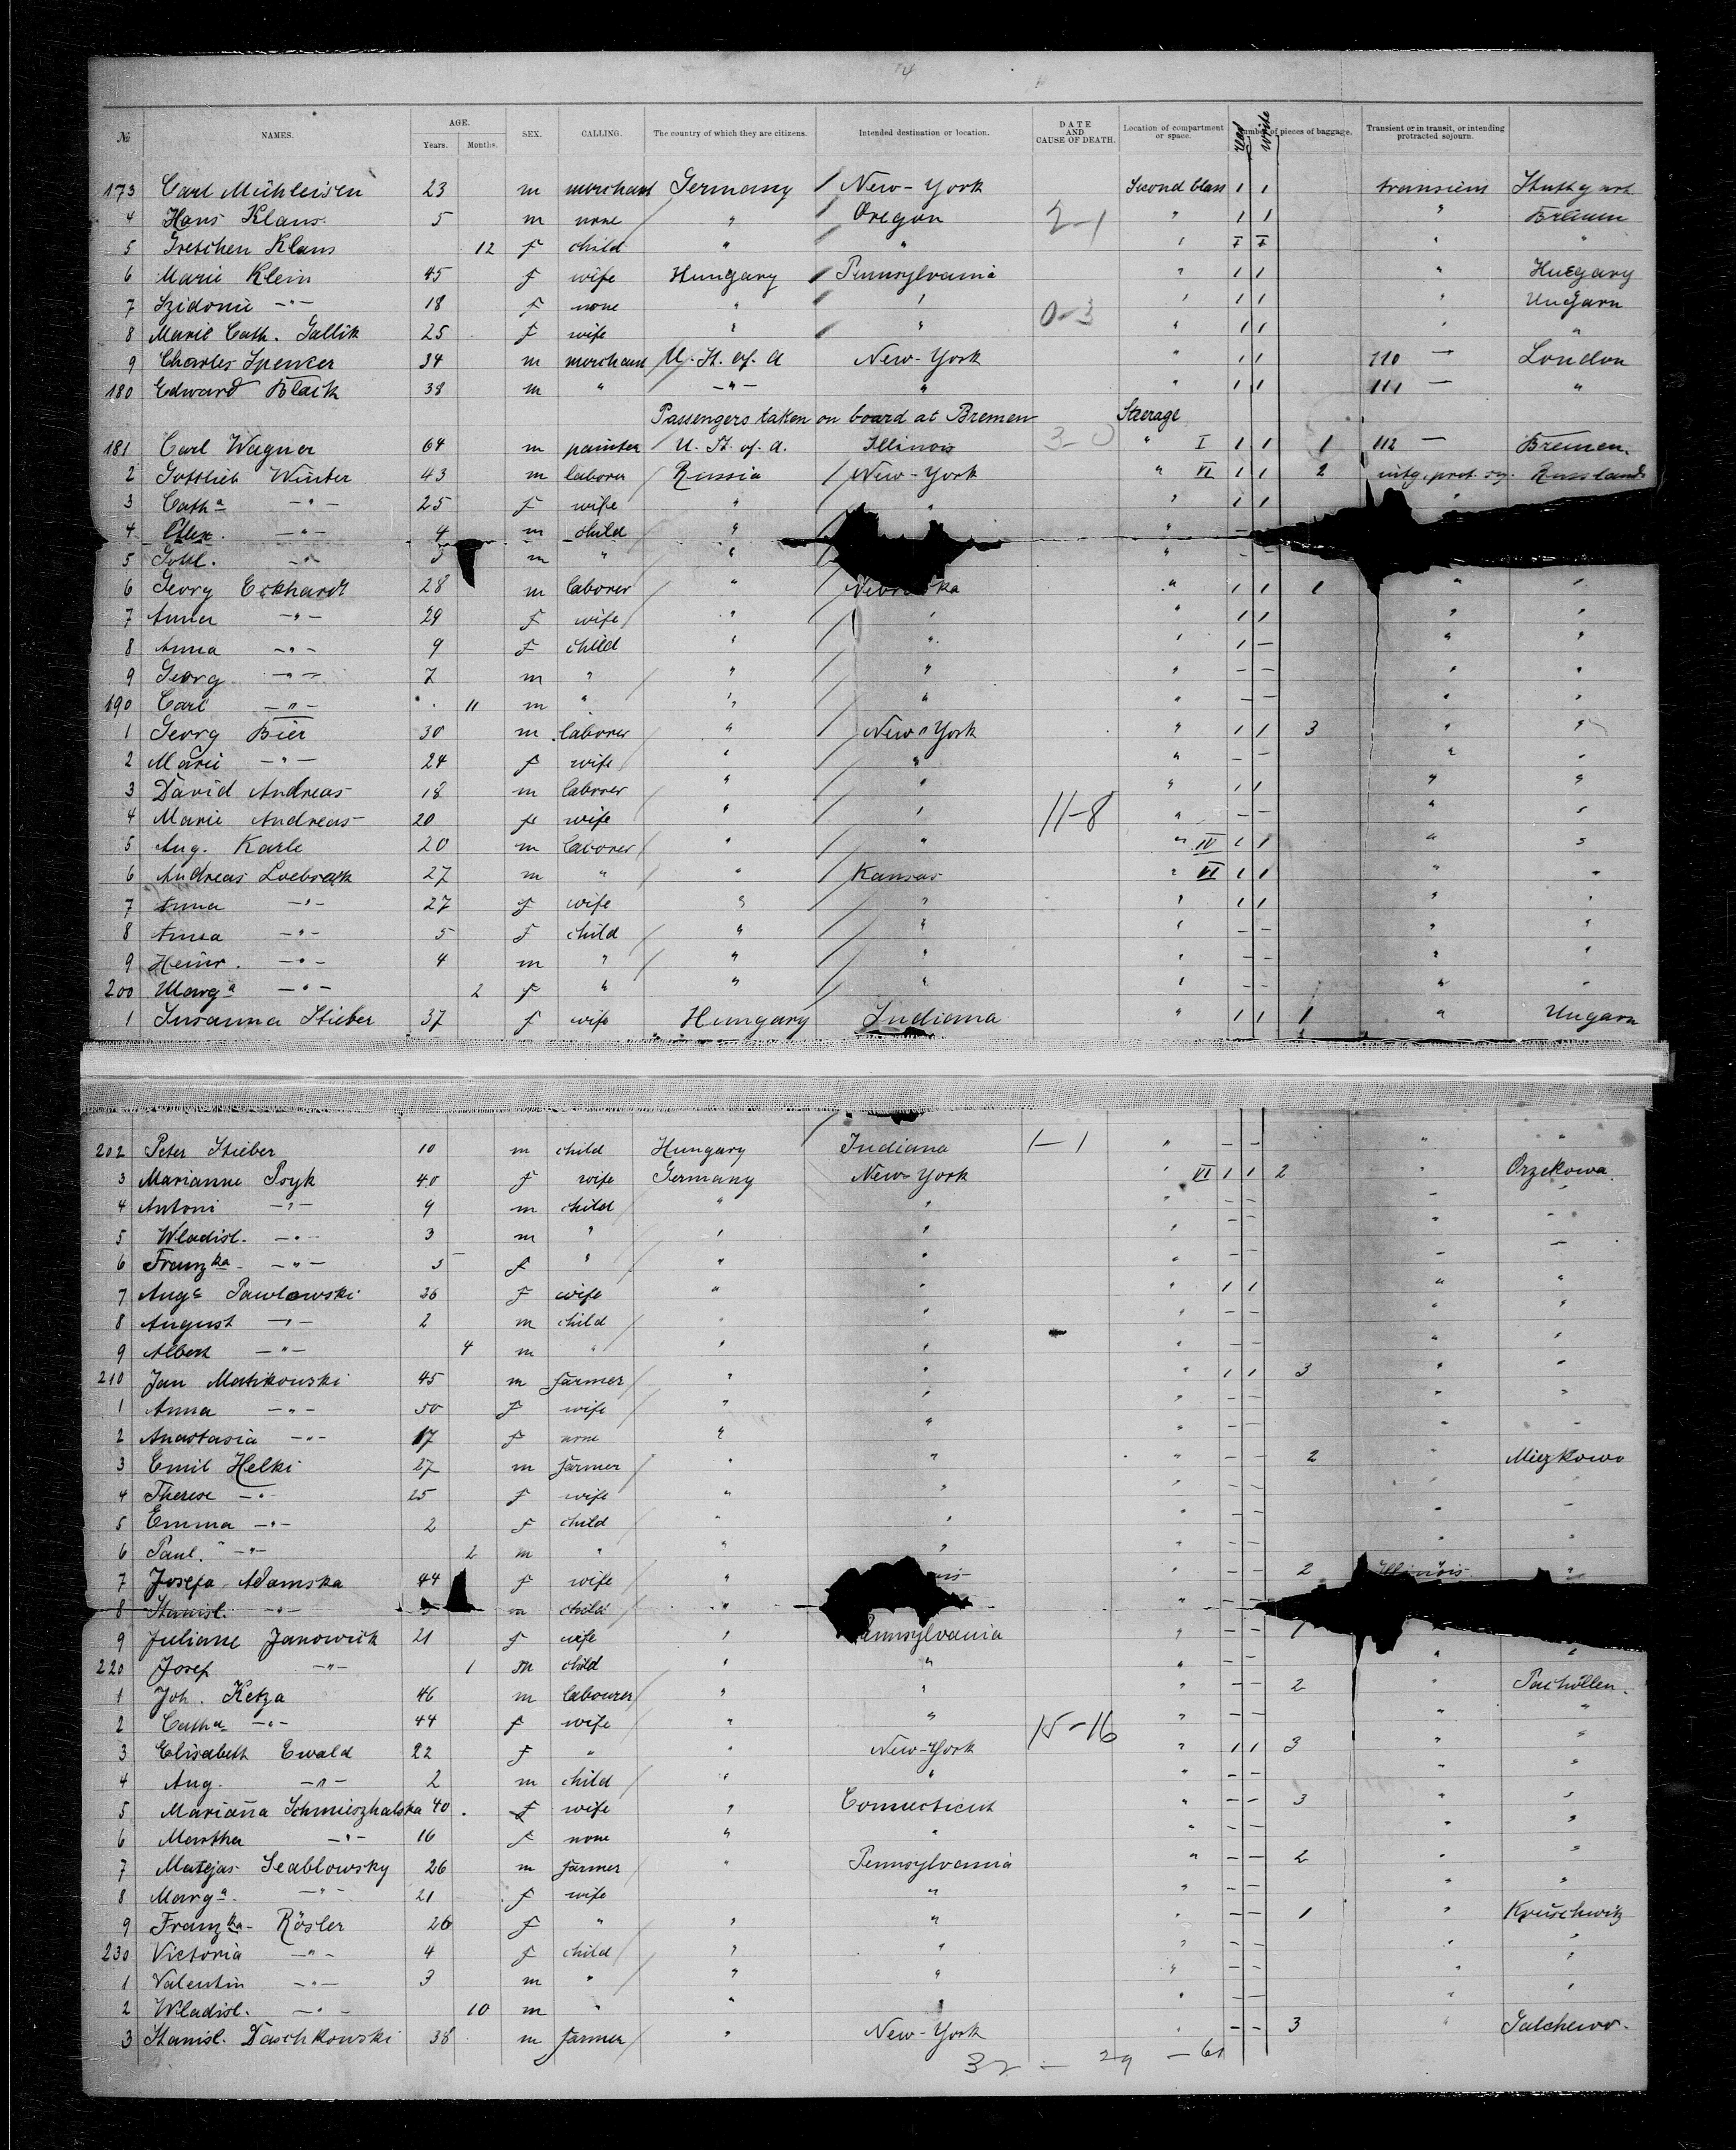 4
№ NAMES. AGE. Years. Months. SEX. CALLING. The country of which they are citizens. Intended destination or location. DATE AND CAUSE OF DEATH. Location of compartment or space. read write Number of pieces of baggage. Transient or in transit, or intending protracted sojourn.
173 Carl Mühleisen 23 m merchant Germany / New-York Second Class 1 1 transient Stuttgart
4 Hans Klaus 5 m none " / Oregon 2-1 " 1 1 " Bremen
5 Gretchen Klaus 12 f child " " " " "
6 Marie Klein 45 f wife Hungary / Pennsylvania " 1 1 " Hungary
7 Szidonie -"- 18 f none " / " " 1 1 " Ungarn
8 Marie Cath. Gallik 25 f wife " / " 0-3 " 1 1 " "
9 Charles Spenker 34 m merchant U. St. of. A New-York " 1 1 110 — London
180 Edward Black 38 m " -"- " " 1 1 111 — "
Passengers taken on board at Bremen Steerage
181 Carl Wagner 64 m painter / U. St. of. A. Illinois 3-0 " I 1 1 1 112 — Bremen.
2 Gottlieb Winter 43 m laborer / Russia / New-York " VI 1 1 2 intg. prot. soj. Russland
3 Catha -"- 25 f wife " " " 1 1
4 -"- 4 m child " "
5 Gottl. -"- 5 m " " " - -
6 Georg Eckhardt 28 m laborer " Nebraska " 1 1 1 " "
7 Anna -"- 29 f wife / " / " " 1 1 " "
8 Anna -"- 9 f child " / " " 1 - " "
9 Georg -"- 7 m " / " / " " - - " "
190 Carl -"- 11 m " " / " " - - " "
1 Georg Bier 30 m laborer " / New-York " 1 1 3 " "
2 Marie -"- 24 f wife / " " " - - " "
3 David Andreas 18 m laborer " / " " 1 1 " "
4 Marie Andreas 20 f wife / " / " 11-8 " - - " "
5 Aug. Karle 20 m laborer / " / " " IV 1 1 " "
6 Andreas Loebsack 27 m " " / Kansas " VI 1 1 " "
7 Anna -"- 27 f wife " / " " 1 1 " "
8 Anna -"- 5 f child / " / " " - - " "
9 Heinr. -"- 4 m " / " / " " - - " "
200 Marga -"- 2 f " " / " " - - " "
1 Susanna Stieber 37 f wife Hungary Indiana " 1 1 1 " Ungarn
202 Peter Stieber 10 m child Hungary Indiana 1-1 " - - " "
3 Marianne Psyk 40 f wife Germany New-York " VI 1 1 2 " Orzekowa.
4 Antoni -"- 9 m child / " " " - - " "
5 Wladisl. -"- 3 m " / " " " - - " "
6 Franzka -"- 5 f " / " " " - - " "
7 Auga Pawlowski 26 f wife " " " 1 1 " "
8 August -"- 2 m child / " " " - - " "
9 Albert -"- 4 m " / " " " - - " "
210 Jan Matikowski 45 m farmer / " " " 1 1 3 " "
1 Anna -"- 50 f wife / " " " - - " "
2 Anastasia -"- 17 f none " " " - - " "
3 Emil Helki 27 m farmer / " " " - - 2 " Miezkowo
4 Therese -"- 25 f wife " " " - - " "
5 Emma -"- 2 f child / " " " - - " "
6 Paul. -"- 2 m " " " " - - " "
7 Josefa Adamska 44 f wife " " - - 2 Illinois "
8 Stanisl. -"- 5 m child / " " - -
9 Juliane Janowick 21 f wife " Pennsylvania " - - 1
220 Josef -"- 1 m child " " " - - " "
1 Joh. Ketza 46 m labourer / " " " - - 2 " Pachollen.
2 Catha -"- 44 f wife / " " 15-16 " - - " "
3 Elisabeth Ewald 22 f " " New-York " 1 1 3 " "
4 Aug. -"- 2 m child / " " " - - " "
5 Mariana Schmieszhalska 40. f wife " Connecticut " - - 3 " "
6 Martha -"- 16 f none " " " - - " "
7 Matejas Seablowsky 26 m farmer " Pennsylvania " - - 2 " "
8 Marga. -"- 21 f wife " " - - " "
9 Franzka- Rösler 26 f " " " " - - 1 " Kruschwitz
230 Victoria -"- 4 f child / " " " - - " "
1 Valentin -"- 3 m " / " " " - - " "
2 Wladisl. -"- 10 m " " " " - - " "
3 Stanisl. Daschkowski 38 m farmer / " New-York " - - 3 " Galchewo.
32 - 29 - 61